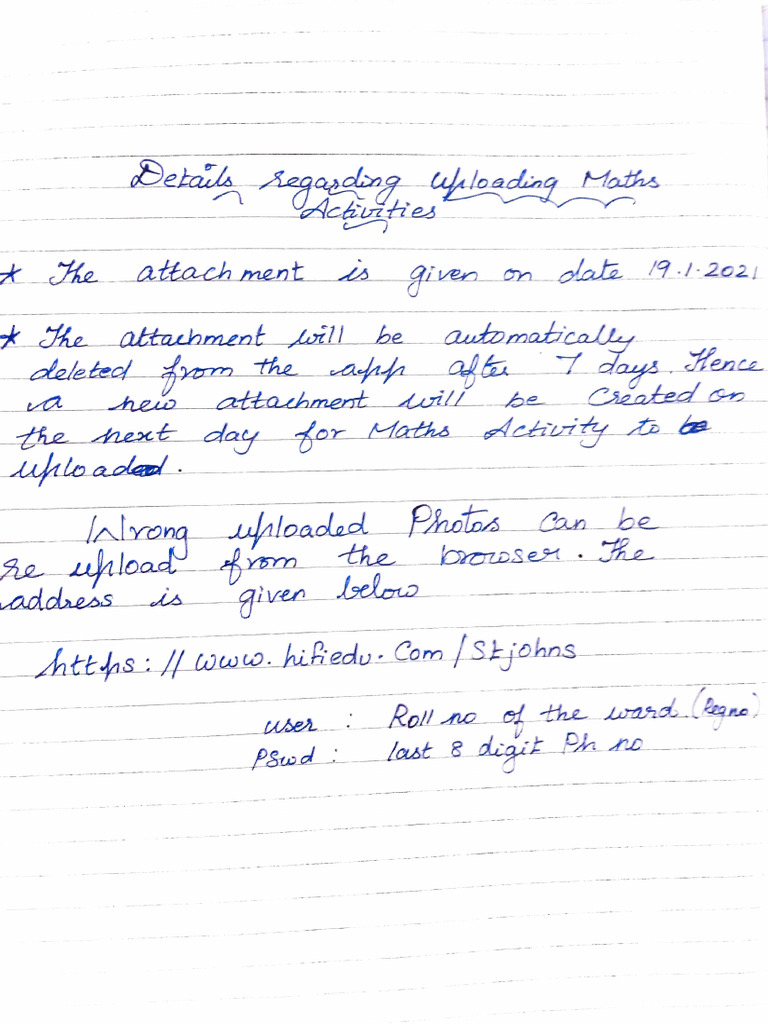 Details regarding uploading Maths
Activities
* The attachment is given on date 19.1.2021
* The attachment will be automatically
deleted from the app after 7 days. Hence
a new attachment will be created on
the next day for Maths Activity to be
upload.
Wrong uploaded Photos can be
re upload from the browser. The
address is given below
https://www.hifiedu.com/Stjohns
user : Roll no of the ward (Regno)
Pswd : last 8 digit Ph no